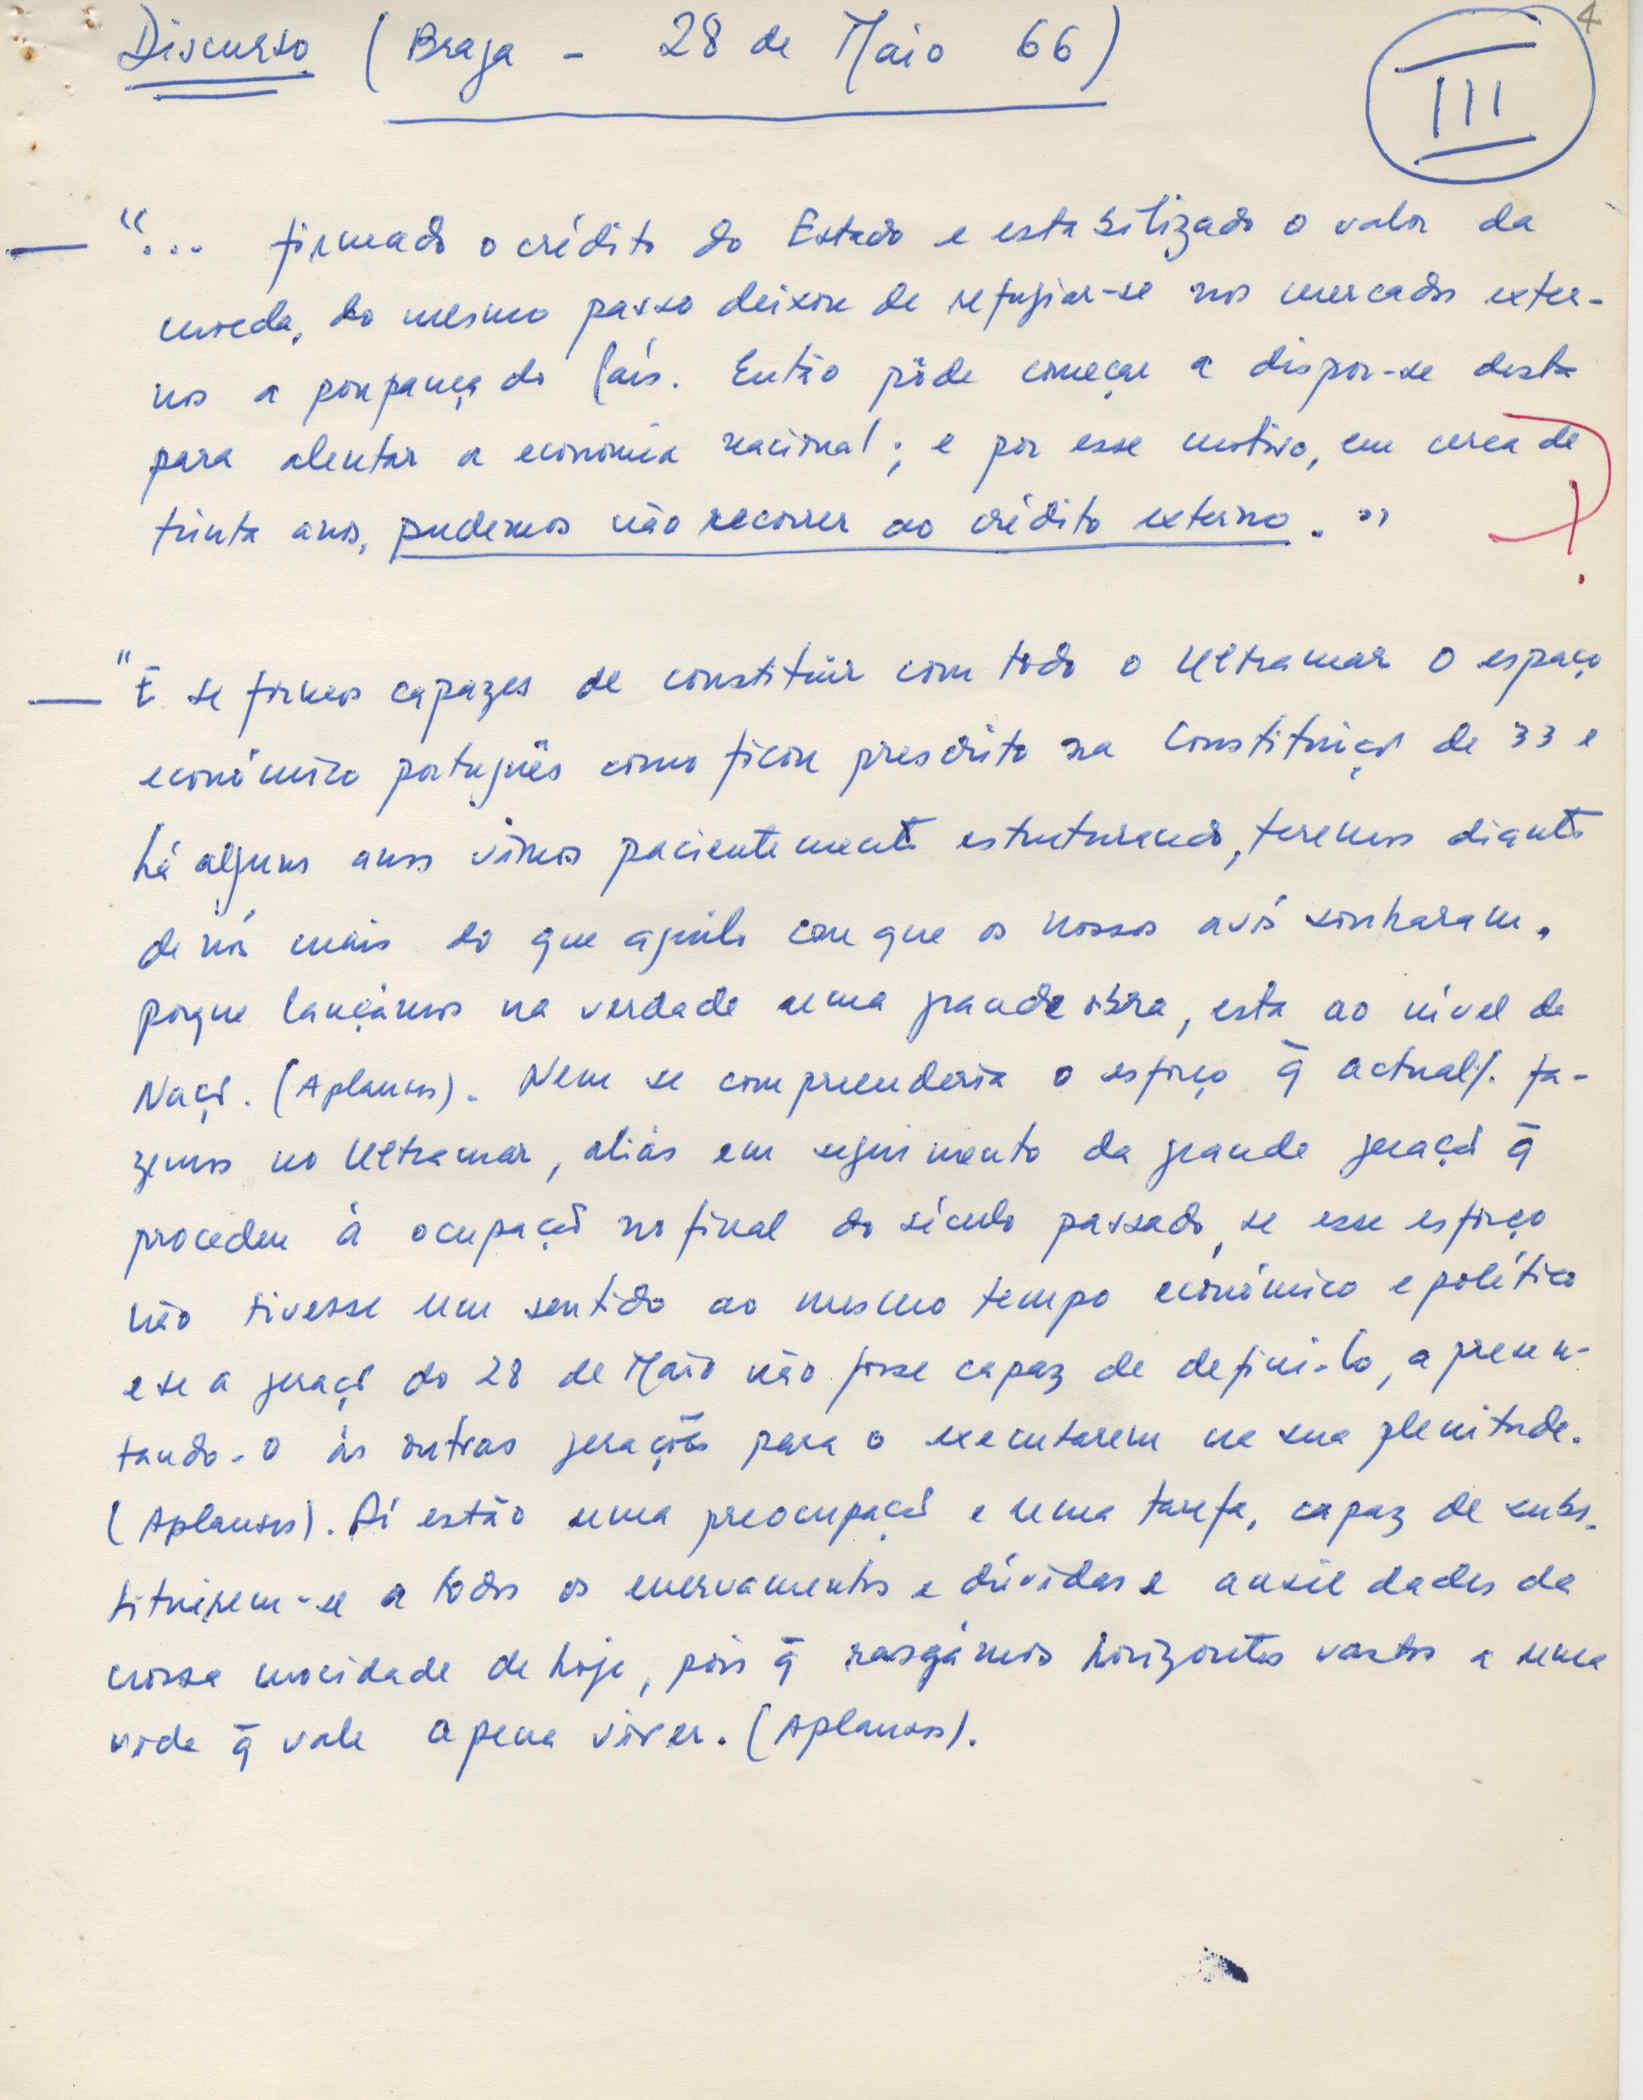 Discurso (Braga - 28 de Maio 66)
4
III
— "... firmado o crédito do Estado e estabilizado o valor da
moeda, do mesmo passo deixou de refugiar-se nos mercados exter-
nos a poupança do País. Então pôde começar a dispor-se desta
para alentar a economia nacional; e por esse motivo, em cerca de
trinta anos, pudemos não recorrer ao crédito externo."
?
— "E se formos capazes de constituir com todo o Ultramar o espaço
económico português como ficou prescrito na Constituiçõ de 33 e
há alguns anos vimos pacientemente estruturando, teremos diante
de nós mais do que aquilo com que os nossos avós sonharam,
porque lançámos na verdade uma grande obra, esta ao nível da
Naçõ. (Aplausos). Nem se compreenderia o esforço q̄ actual/. fa-
zemos no Ultramar, aliás em seguimento da grande geraçõ q̄
procedeu à ocupaçõ no final do século passado, se esse esforço
não tivesse um sentido ao mesmo tempo económico e político
e se a geraçõ do 28 de Maio não fosse capaz de defini-lo, apresen-
tando-o às outras gerações para o executarem na sua plenitude.
(Aplausos). Aí estão uma preocupaçõ e uma tarefa, capaz de subs-
tituirem-se a todos os enervamentos e dúvidas e ansiedades da
nossa mocidade de hoje, pois q̄ rasgámos horizontes vastos a uma
vida q̄ vale a pena viver. (Aplausos).